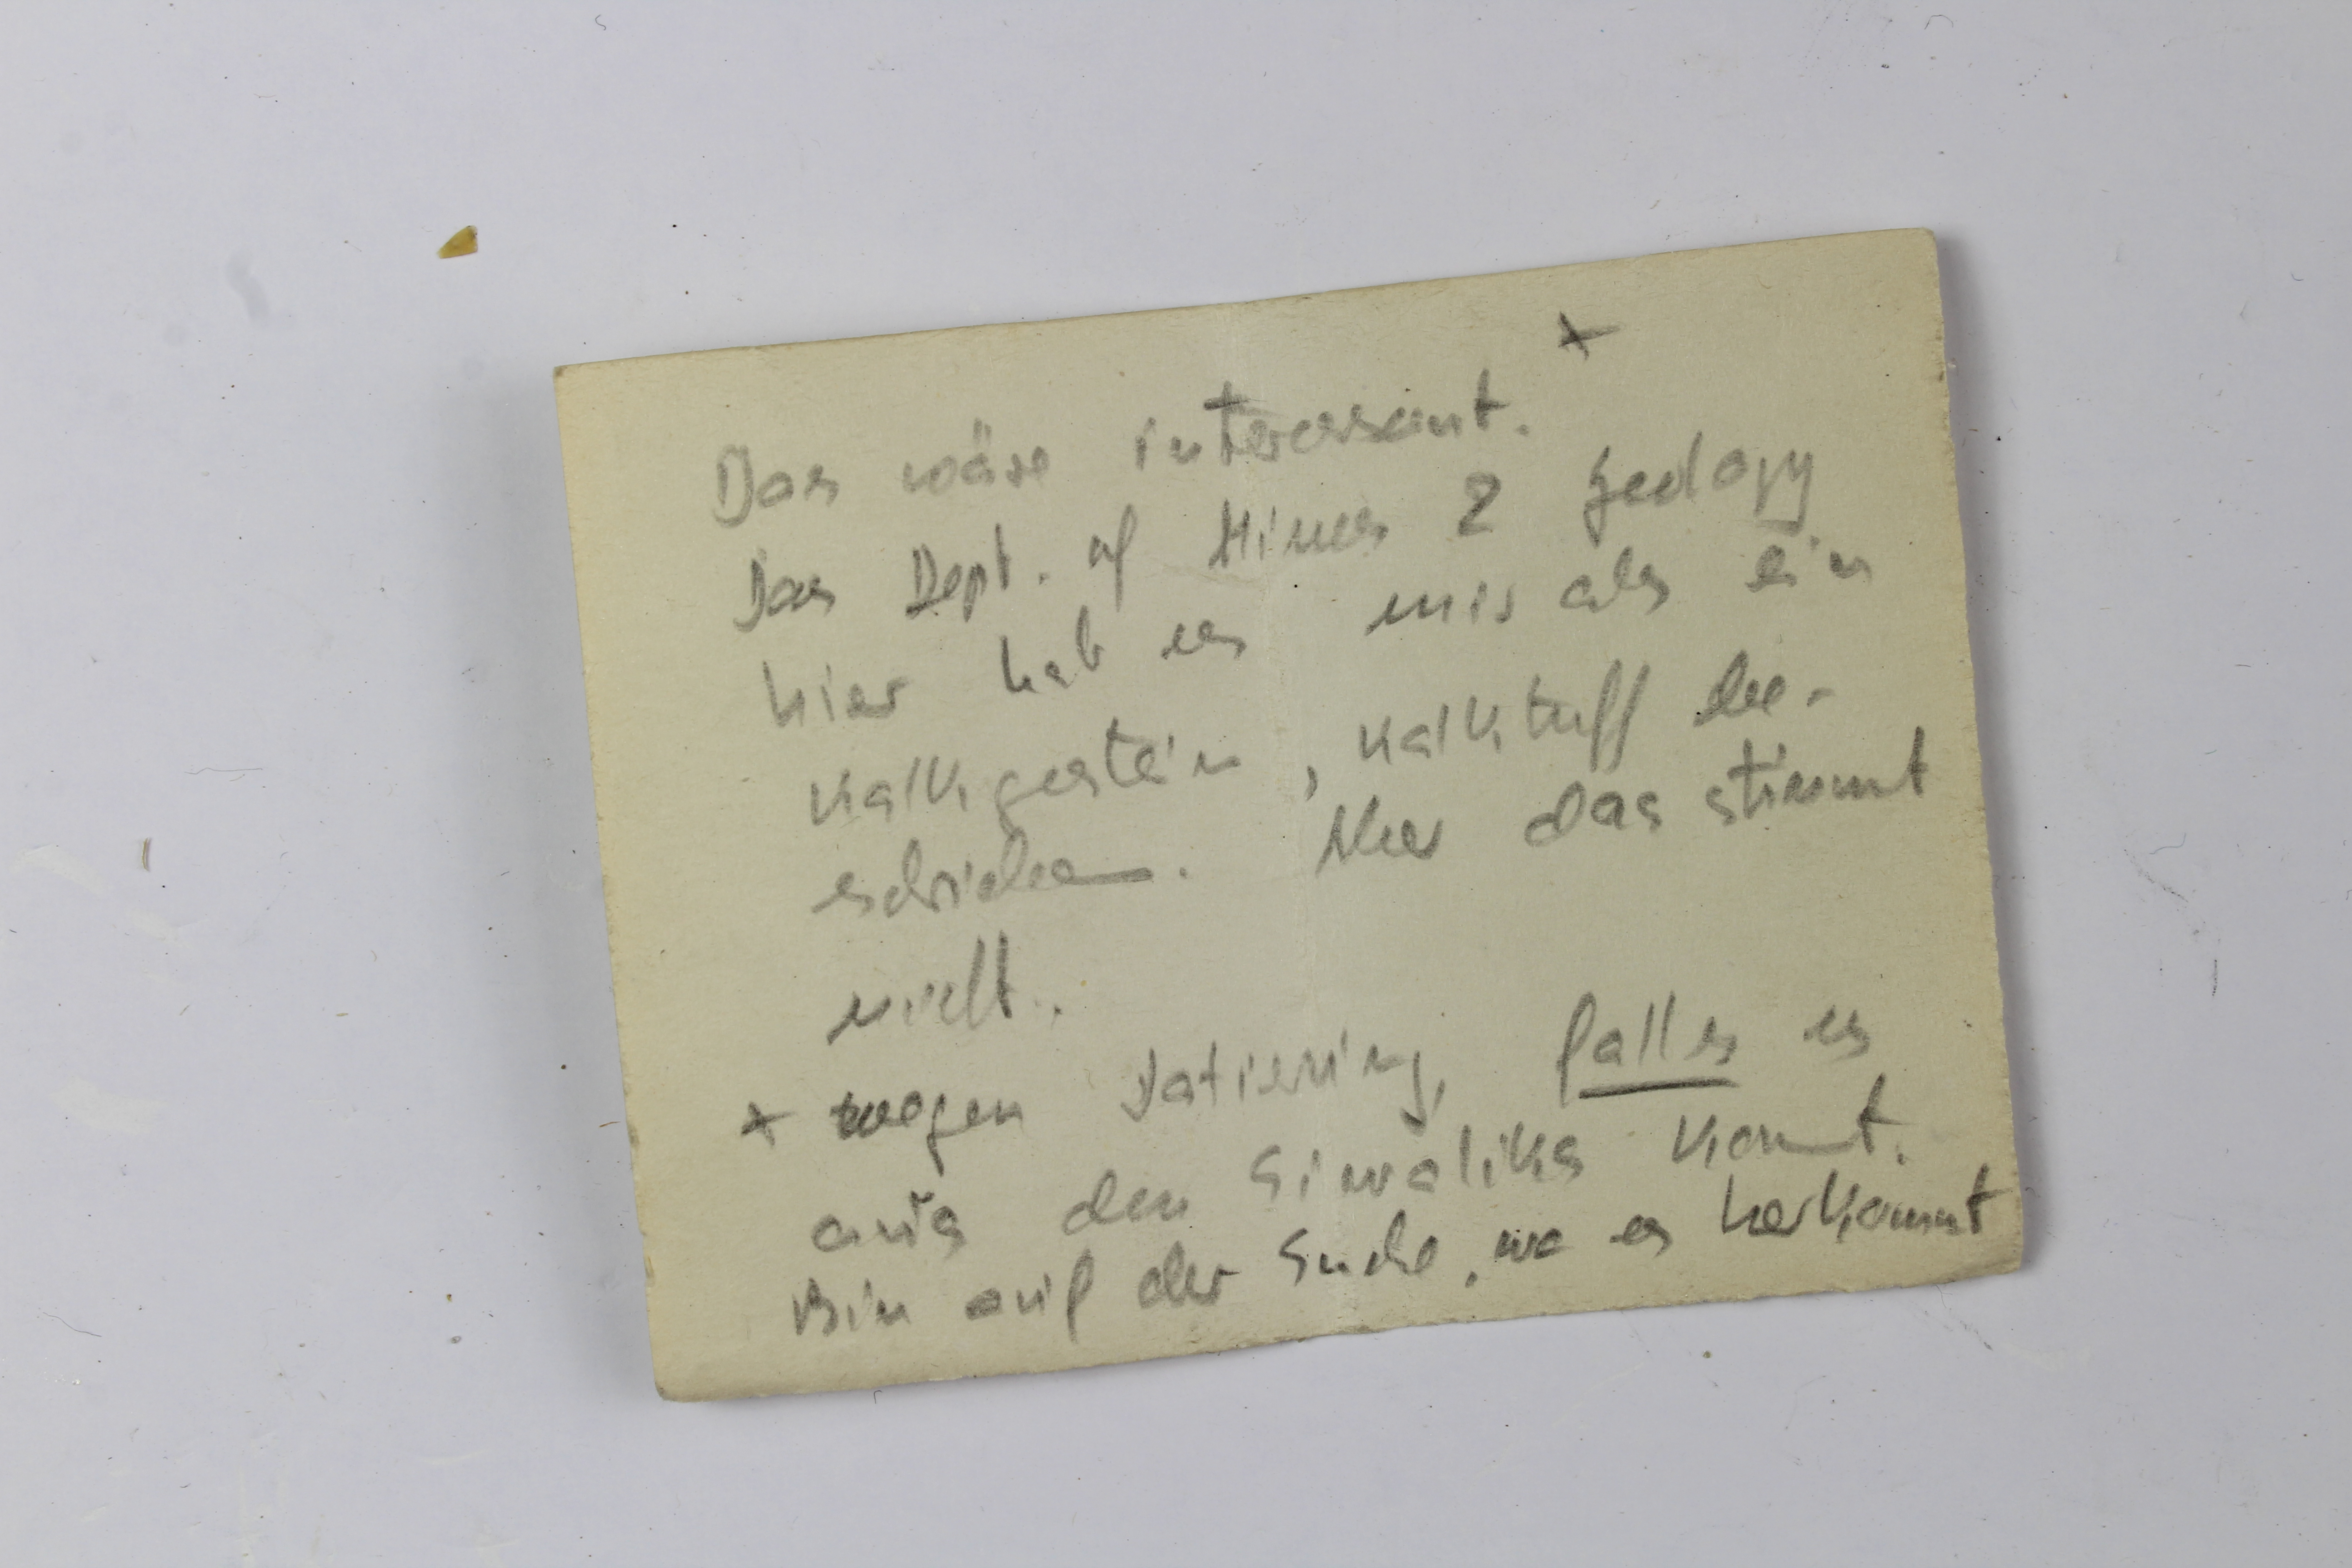 Das wäre interessant. +
Das Dept. of Mines & Geology
hier hat es mir als ein
Kalkgestein, Kalktuff be-
schrieben. Aber das stimmt
nicht.
+ wegen Datierung, falls es
aus den Siwaliks kommt.
Bin auf der Suche, wo es herkommt